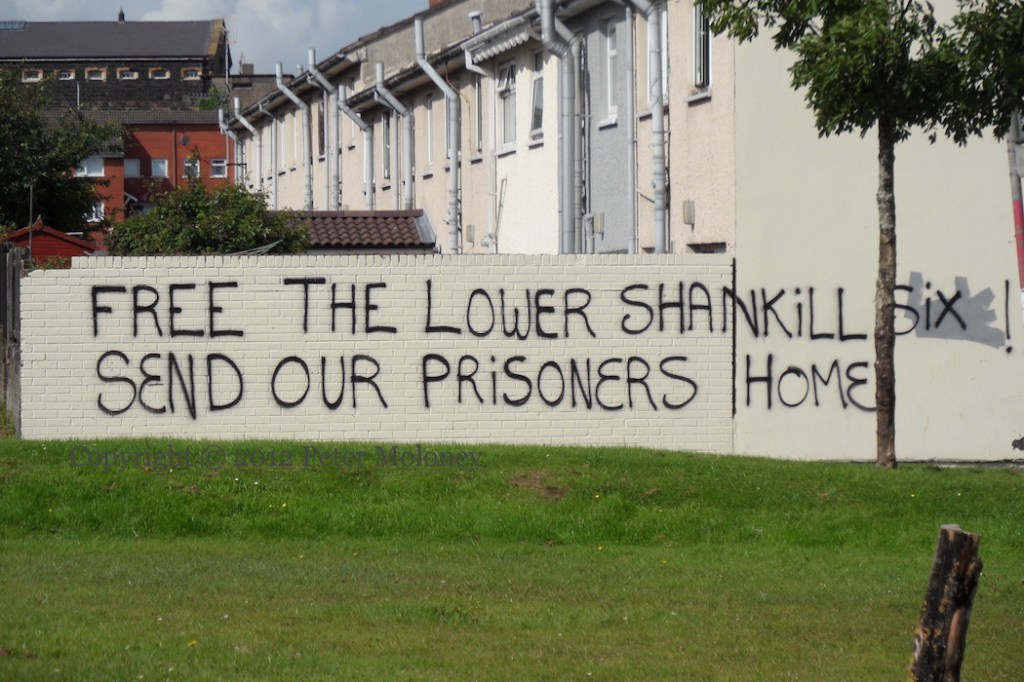 FREE THE LOWER SHANKiLL SiX !
SEND OUR PRiSONERS HOME
Copyright © 2012 Peter Moloney